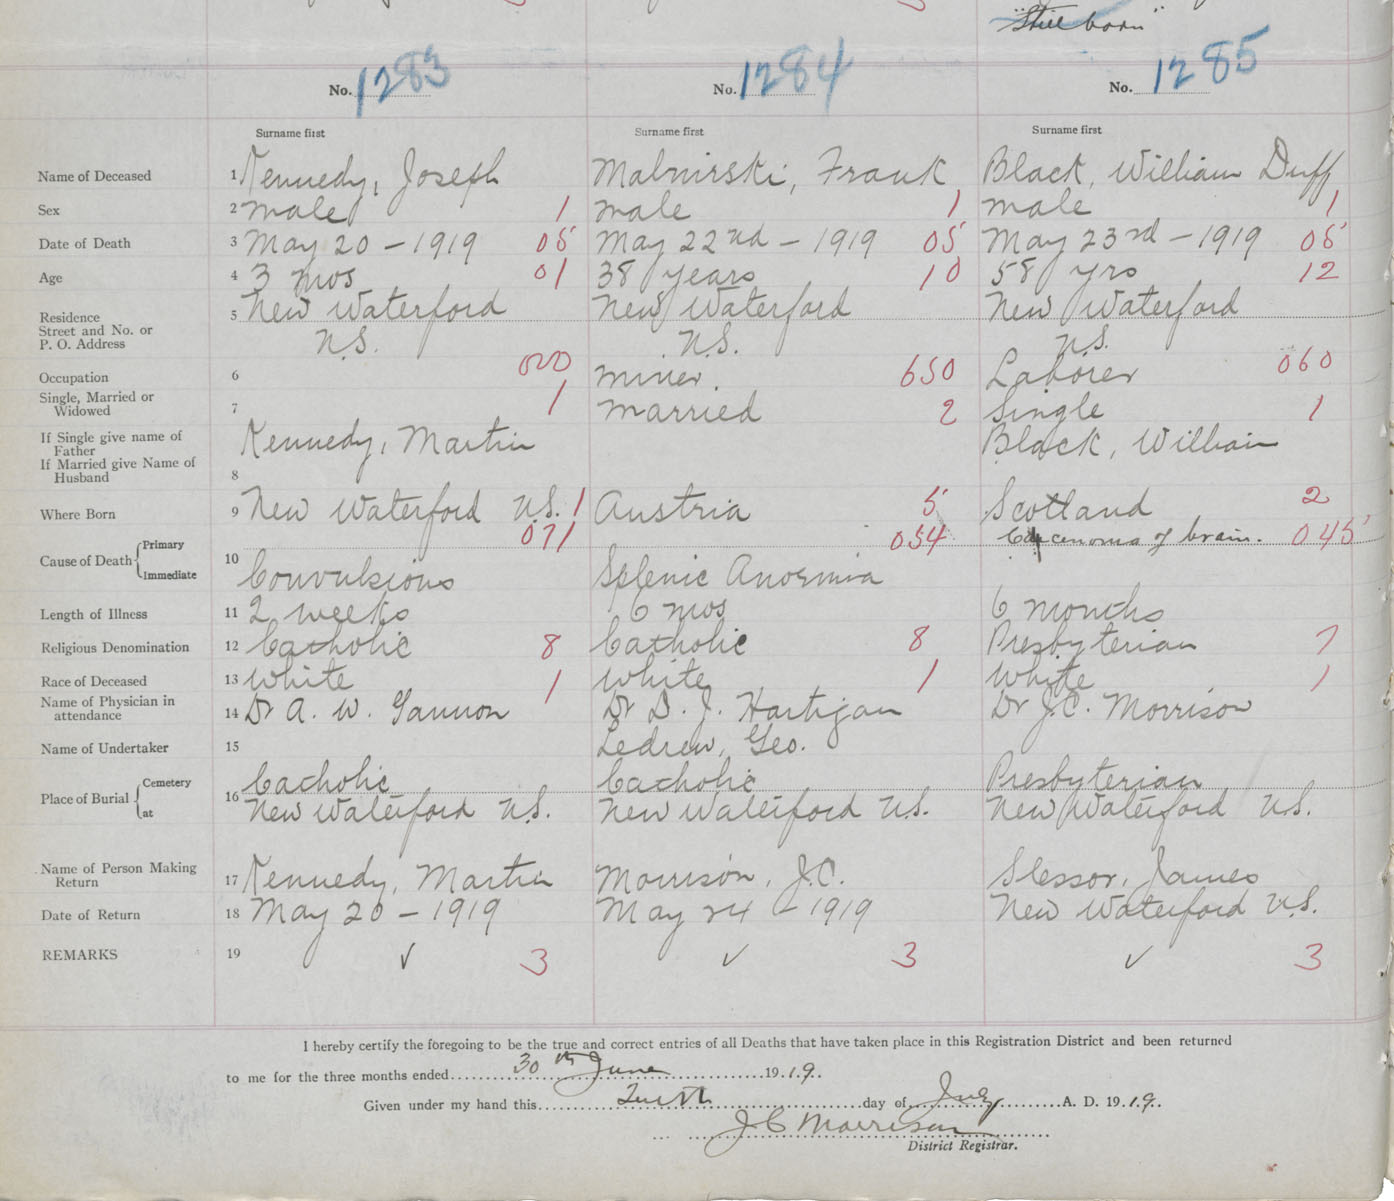 "Still born"
No. 1283 No. 1284 No. 1285
Surname first Surname first Surname first
Name of Deceased 1 Kennedy, Joseph Malnirski, Frank Black, William Duff
Sex 2 male 1 male 1 male 1
Date of Death 3 May 20 - 1919 05 May 22nd - 1919 05 May 23rd - 1919 05
Age 4 3 mos 01 38 years 10 58 yrs 12
Residence
Street and No. or
P. O. Address
5 New Waterford New Waterford New Waterford
N.S. N.S. N.S.
Occupation 6 000 miner. 650 Laborer 060
Single, Married or
Widowed
7 1 married 2 Single 1
If Single give name of
Father
If Married give Name of
Husband
8 Kennedy, Martin Black, William
Where Born 9 New Waterford N.S. 1 Austria 5 Scotland 2
Cause of Death Primary 071 054 Carcenoma of brain. 045
Immediate 10 Convulsions Splenic Anoemia
Length of Illness 11 2 weeks 6 mos 6 months
Religious Denomination 12 Catholic 8 Catholic 8 Presbyterian 7
Race of Deceased 13 White 1 White 1 White 1
Name of Physician in
attendance
14 Dr A. W. Gannon Dr D. J. Hartigan Dr J.C. Morrison
Name of Undertaker 15 Ledrew, Geo.
Place of Burial Cemetery 16 Catholic Catholic Presbyterian
at New Waterford N.S. New Waterford N.S. New Waterford N.S.
Name of Person Making
Return
17 Kennedy, Martin Morrison, J.C. Slessor, James
Date of Return 18 May 20 - 1919 May 24 - 1919 New Waterford N.S.
REMARKS 19 ✓ 3 ✓ 3 ✓ 3
I hereby certify the foregoing to be the true and correct entries of all Deaths that have taken place in this Registration District and been returned
to me for the three months ended 30th June 1919.
Given under my hand this day of July A. D. 1919.
J C Morrison
District Registrar.